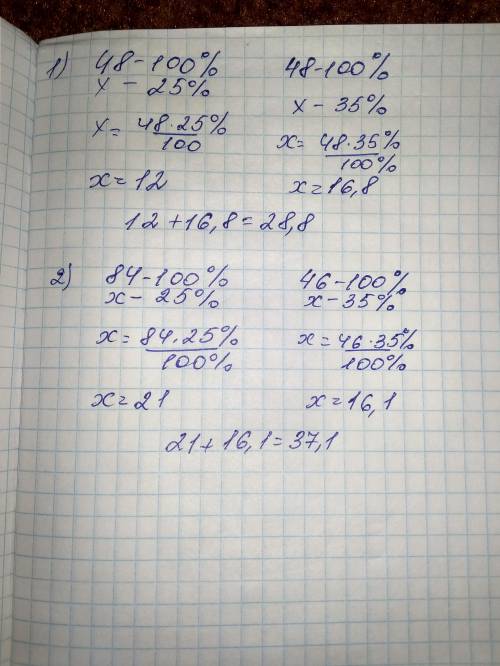 1) 48-100% 48-100%
x - 25% x - 35%
x = 48·25% / 100 x = 48·35% / 100%
x = 12 x = 16,8
12 + 16,8 = 28,8
2) 84-100% 46-100%
x - 25% x - 35%
x = 84·25% / 100% x = 46·35% / 100%
x = 21 x = 16,1
21 + 16,1 = 37,1